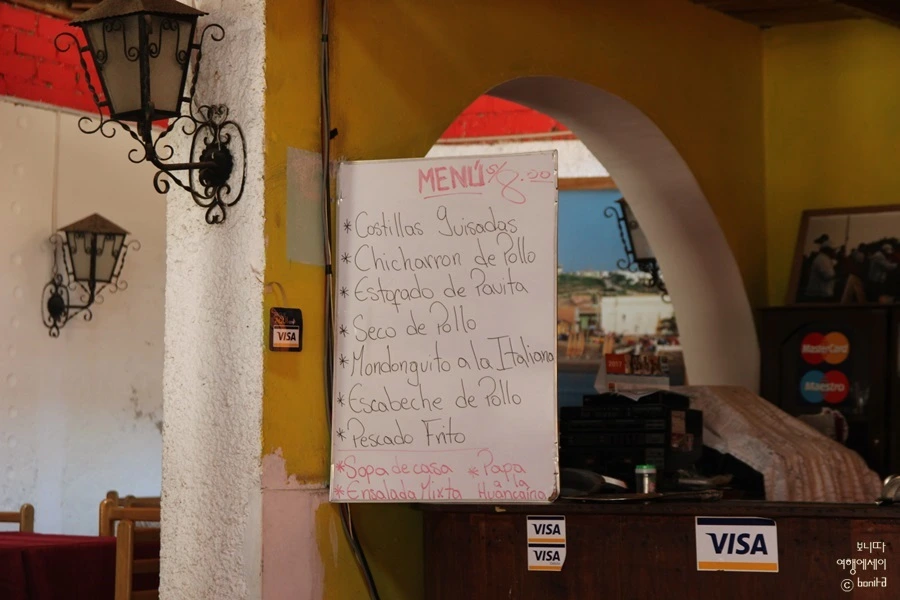 MENÚ S/8.00
* Costillas guisadas
* Chicharron de Pollo
* Estofado de Pavita
* Seco de Pollo
* Mondonguito a la Italiana
* Escabeche de Pollo
* Pescado Frito
* Sopa de casa
* Ensalada Mixta
* Papa
a la
Huancaina
VISA
2017
MasterCard
Maestro
VISA
VISA
VISA
보니따
여행에세이
© bonita